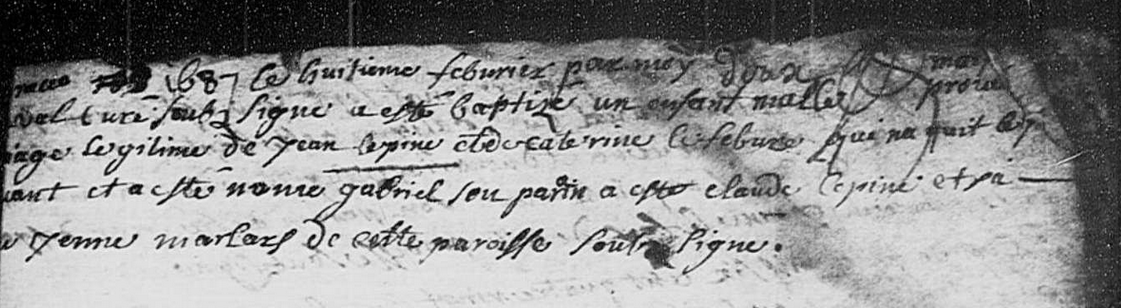 1687 le huitieme feburier par moy
curé soub signe a esté baptizé un enfant malle
legitime de jean lepine et de caterine lefebure qui naquit le
et a esté nomé gabriel son parin a esté claude lepine et sa
jenne marlars de cette paroisse soub signe.